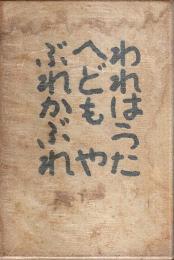 われはうた
へども や
ぶれかぶれ